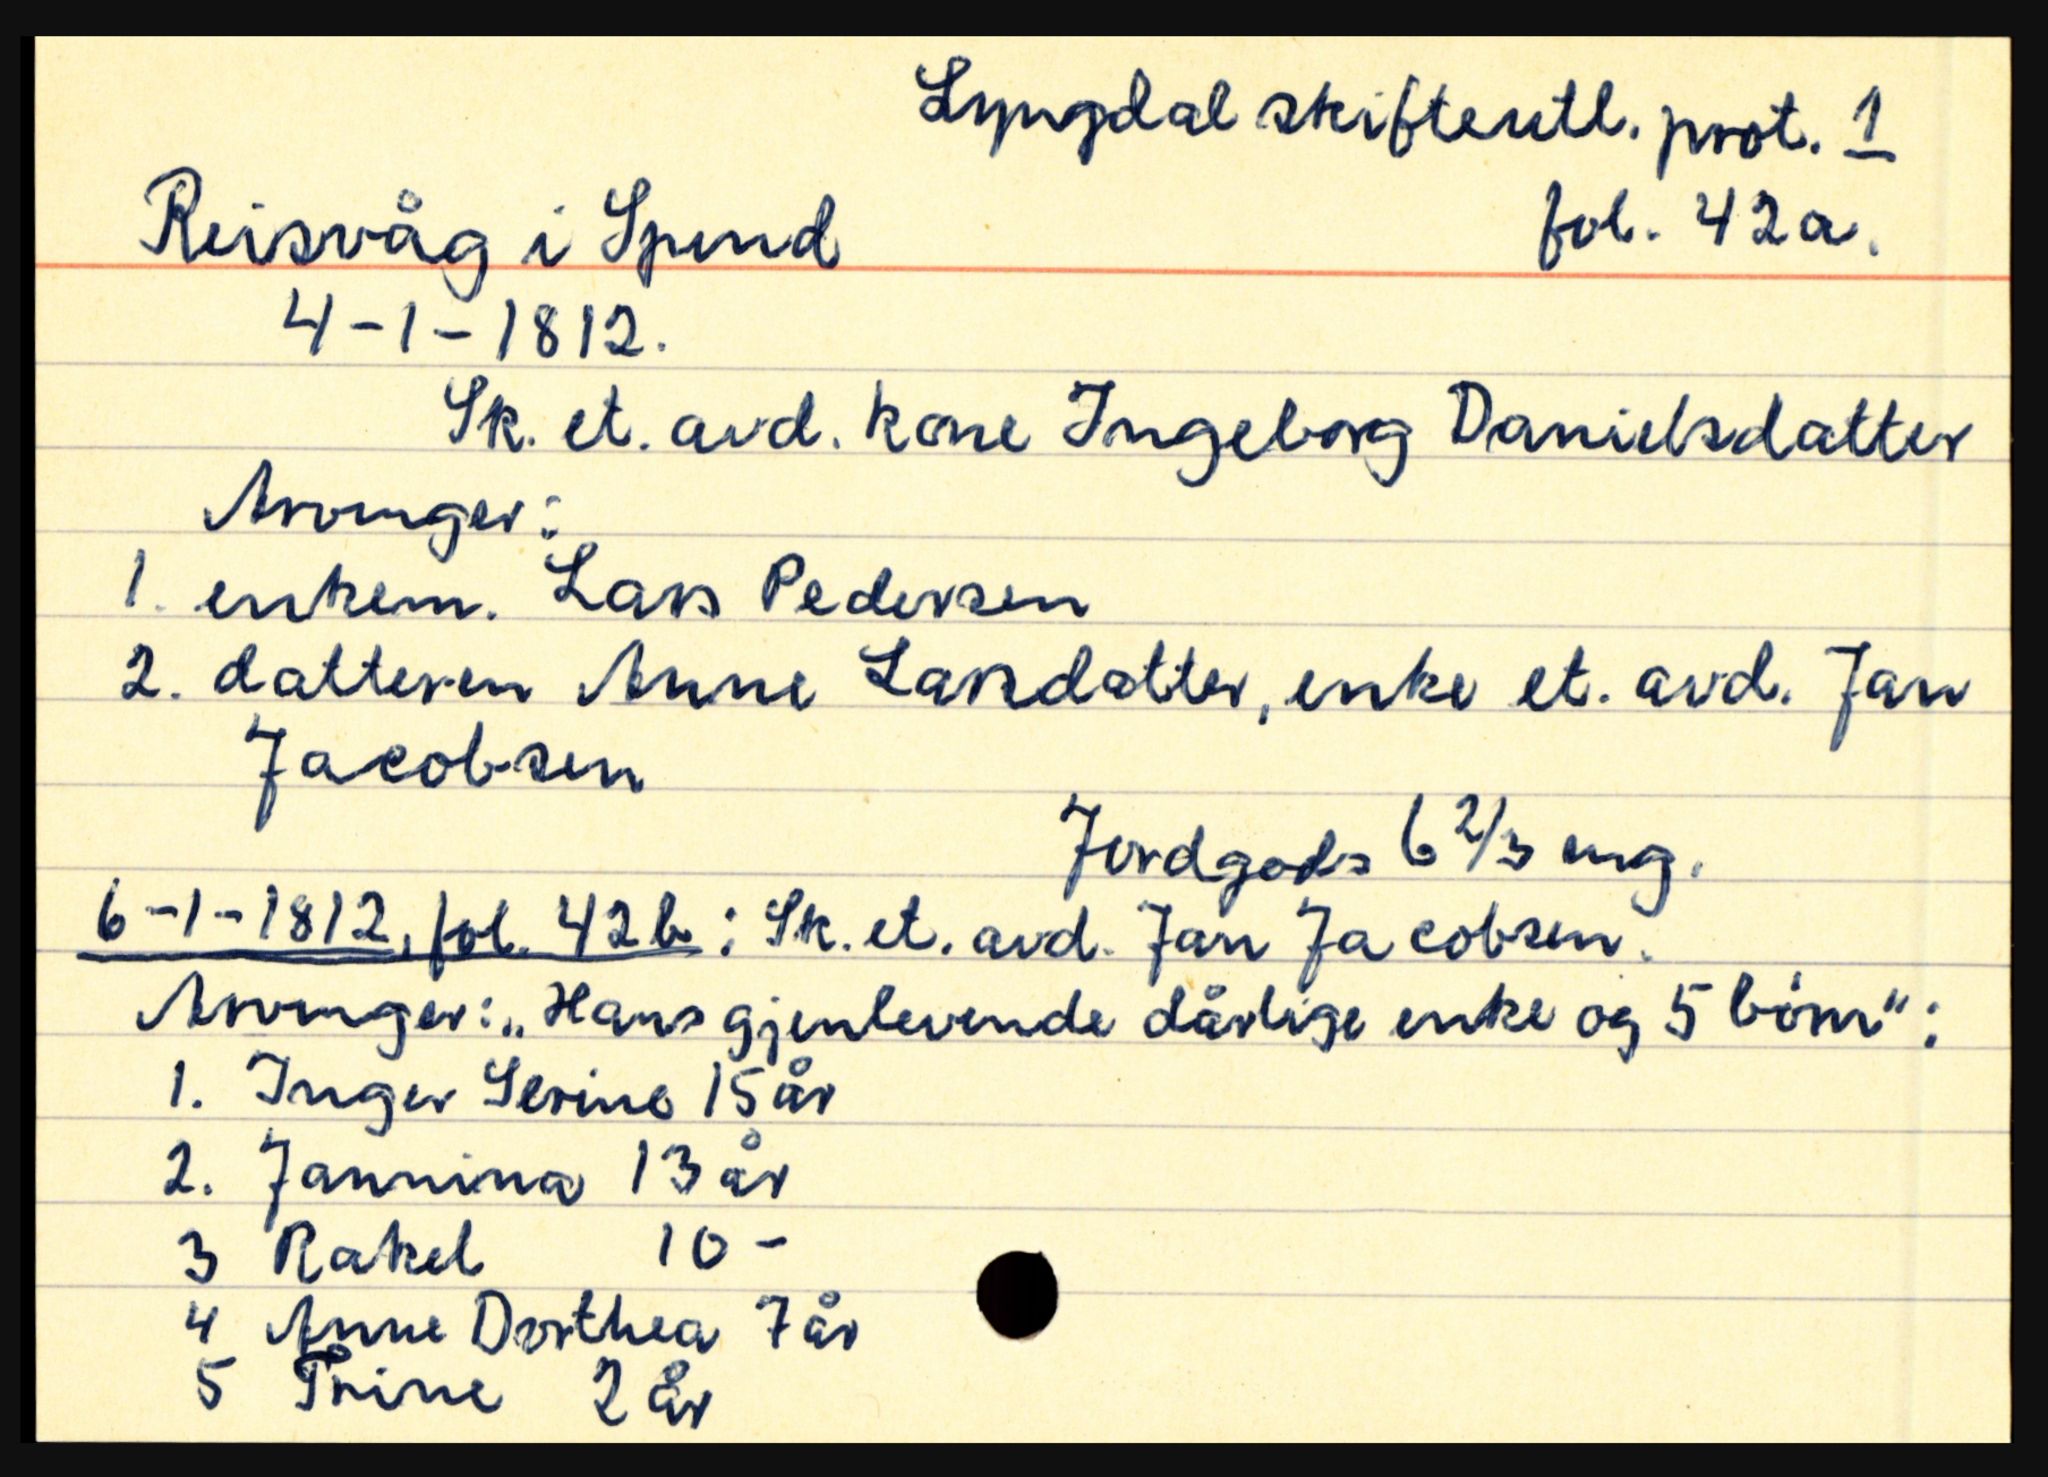 Lyngdal skifteutl. prot. 1
Reisvåg i Spind fol. 42a.
4-1-1812.
Sk. et. avd. kone Ingeborg Danielsdatter
Arvinger:
1. enkem. Lars Pedersen
2. datteren Anne Larsdatter, enke et. avd. Jan
Jacobsen
Jordgods 6 2/3 mg.
6-1-1812, fol. 42b: Sk. et. avd. Jan Jacobsen.
Arvinger: „Hans gjenlevende dårlige enke og 5 börn":
1. Inger Serine 15 år
2. Jannina 13 år
3 Rakel 10 -
4 Anne Dorthea 7 år
5 Trine 2 år